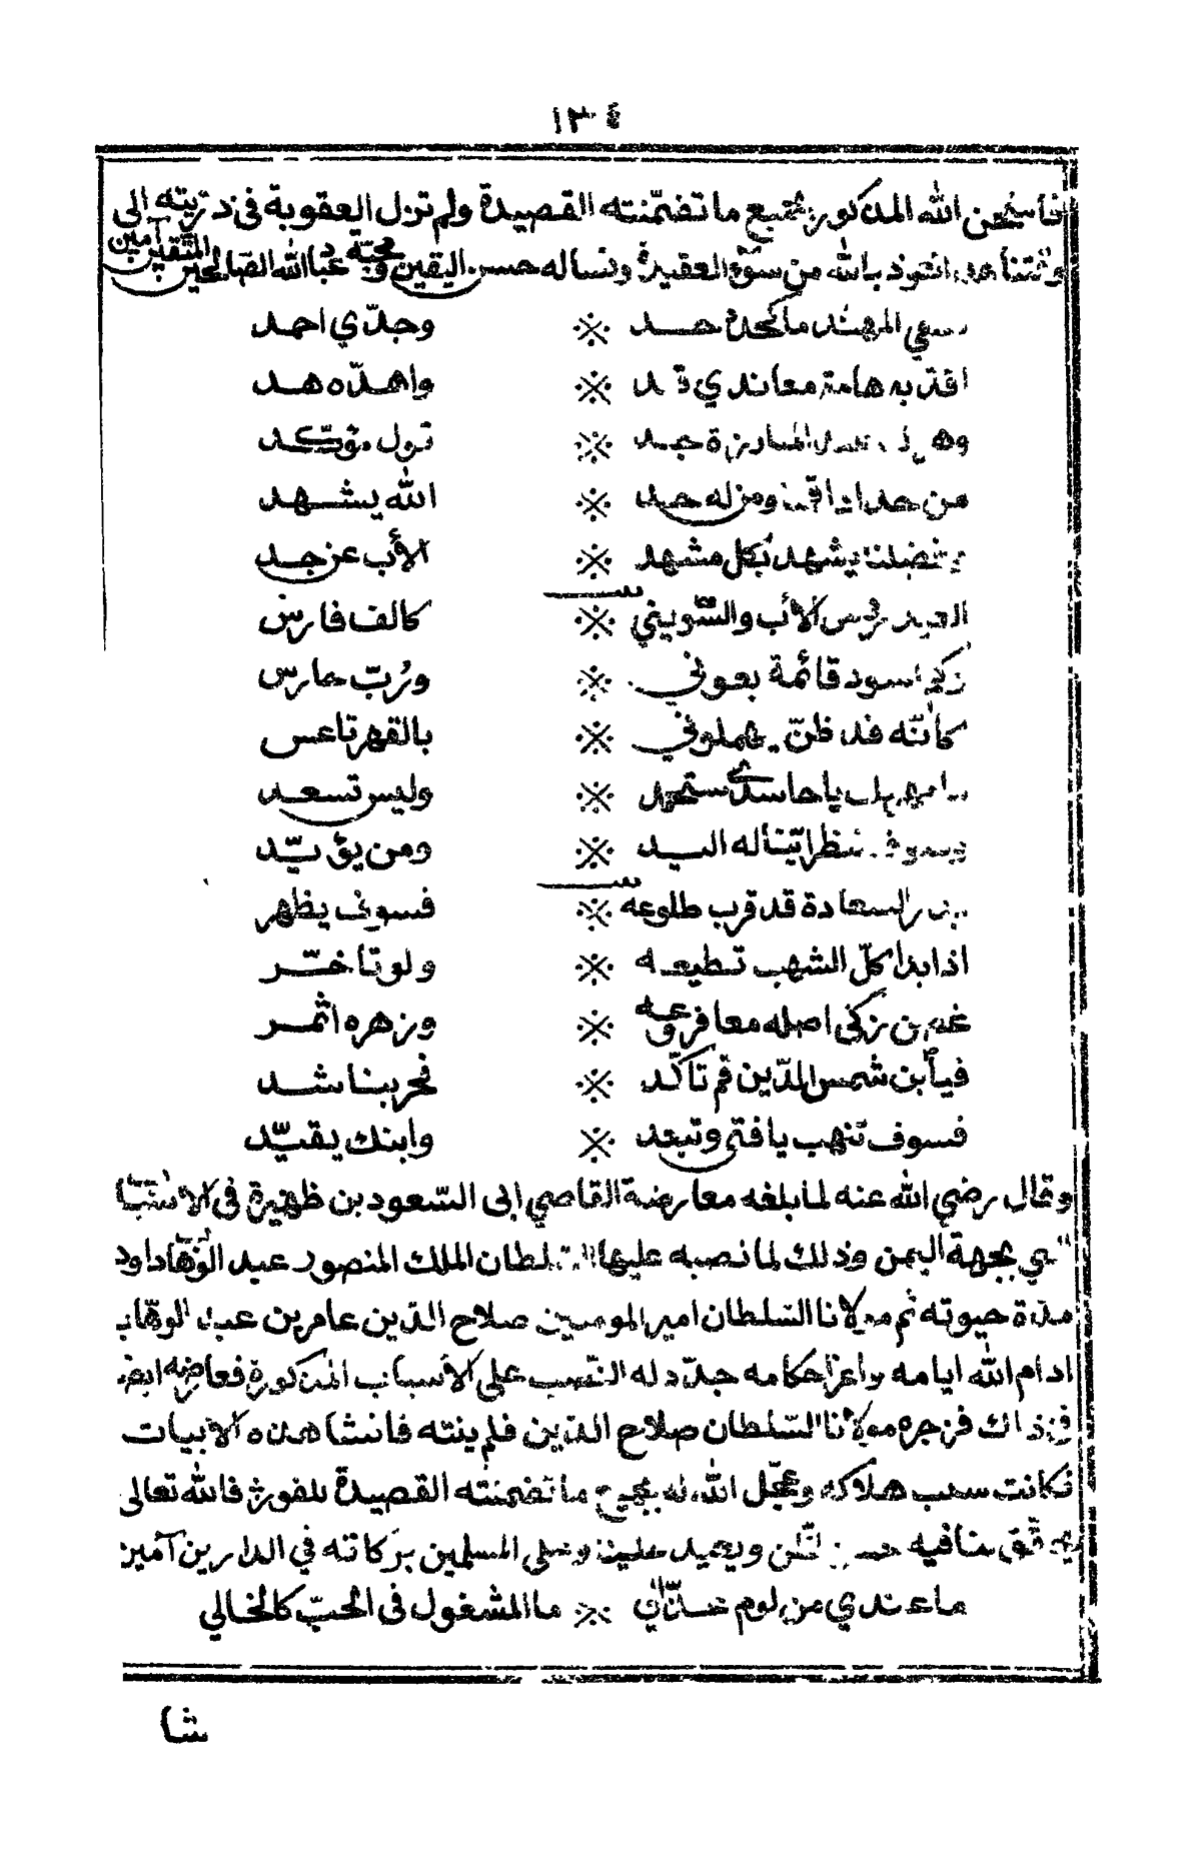 ١٣٤
الله المذكور بجميع ما تضمّنته القصيدة ولم تزل العقوبة فى ذرّيته الى
نعوذ بالله من سوء العقيدة ونساله حسن اليقين ومحبّة عباد الله الصّالحين المتقين آمين
المهنّد ما كمحدّه حـد ※ وجدّي احمد
اقدّ به هامة معاندي قد ※ واهدّه هد
المبارزة جد ※ قول مؤكّد
من ومن له حد ※ الله يشهد
بفضلنا يشهد بكل مشهد ※ الأب عن جد
الأب والشّويني ※ كالف فارس
قائمة بعوني ※ ورُبّ حارس
كأنّه قد ظنّ يهملوني ※ بالقهر تاعس
يا حاسدي ستجهد ※ وليس تسعد
تنظر اتيناله اليد ※ ومن يؤيّد
السعادة قد قرب طلوعه ※ فسوف يظهر
اذا بدا كلّ الشهب تطيعه ※ ولو تاخّر
زكى اصله معا فروعه ※ وزهره اثمر
فيا ابن شمس الدّين قم تاكّد ※ فحربنا شد
فسوف تنهب يا فتى وتبعد ※ وابنك يقيّد
وقال رضي الله عنه لما بلغه معارضة القاضي ابى السّعود بن ظهيرة فى الاسباب
بجهة اليمن وذلك لما نصبه عليها السّلطان الملك المنصور عبد الوهّاب داود
مدّة حيوته ثم مولانا السّلطان امير المومنين صلاح الدّين عامر بن عبد الوهّاب
ادام الله ايامه واعزّ احكامه جدّد له النّصب على الأسباب المذكورة فعارضه ايضا
فى ذاك فزجره مولانا السّلطان صلاح الدّين فلم ينته فانشا هذه الابيات
فكانت سبب هلاكه وعجّل الله له بجميع ما تضمنته القصيدة للفور فالله تعالى
فيه حسن الظّن ويعيد علينا وعلى المسلمين بركاته في الدارين آمين
ما عندي من لوم عذّالي ※ ما المشغول فى الحبّ كالخالي
شا